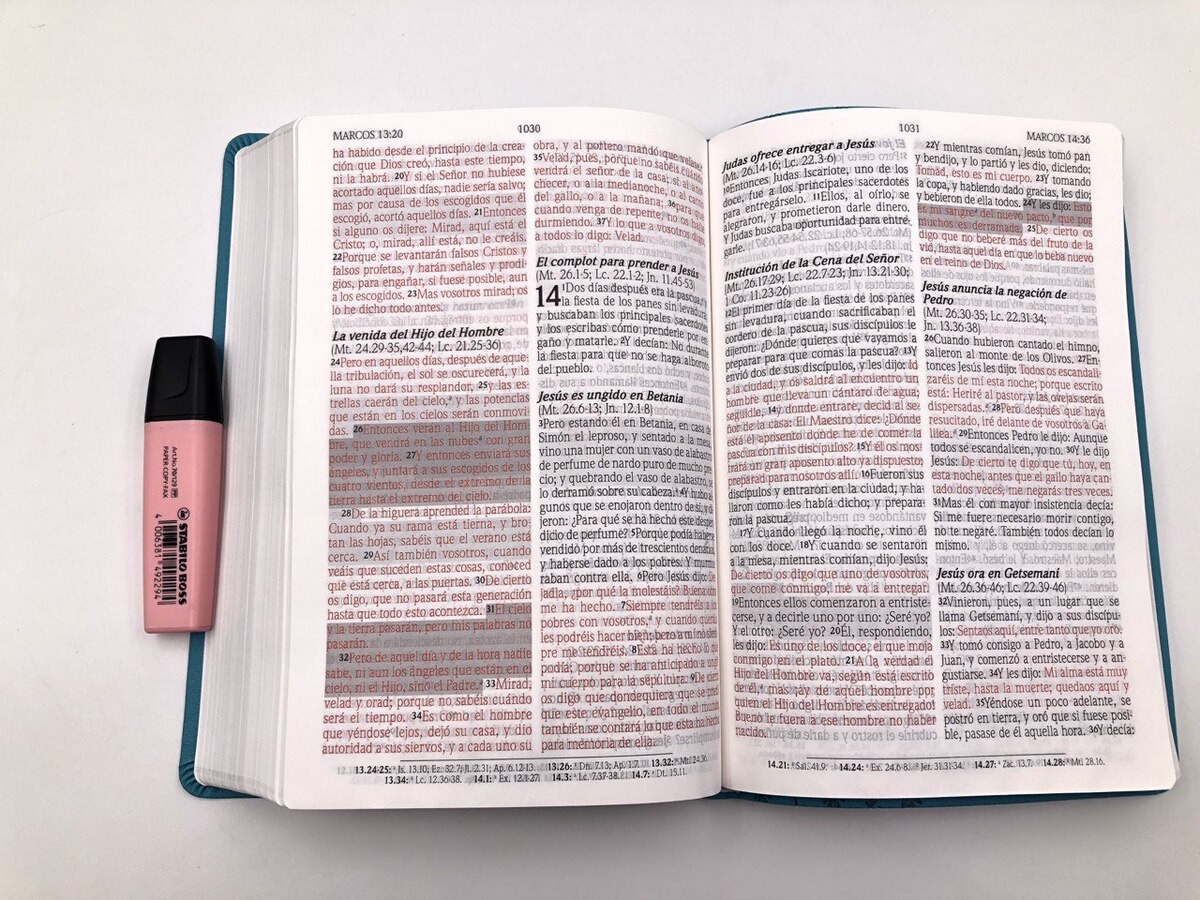 MARCOS 13:20
1030
ha habido desde el principio de la crea-
ción que Dios creó, hasta este tiempo,
ni la habrá. 20Y si el Señor no hubiese
acortado aquellos días, nadie sería salvo;
mas por causa de los escogidos que él
escogió, acortó aquellos días. 21Entonces
si alguno os dijere: Mirad, aquí está el
Cristo; o, mirad, allí está, no le creáis.
22Porque se levantarán falsos Cristos y
falsos profetas, y harán señales y prodi-
gios, para engañar, si fuese posible, aun
a los escogidos. 23Mas vosotros mirad; os
lo he dicho todo antes.
La venida del Hijo del Hombre
(Mt. 24.29-35,42-44; Lc. 21.25-36)
24Pero en aquellos días, después de aque-
lla tribulación, el sol se oscurecerá, y la
luna no dará su resplandor, 25y las es-
trellas caerán del cielo, y las potencias
que están en los cielos serán conmovi-
das. 26Entonces verán al Hijo del Hom-
bre, que vendrá en las nubes con gran
poder y gloria. 27Y entonces enviará sus
ángeles, y juntará a sus escogidos de los
cuatro vientos, desde el extremo de la
tierra hasta el extremo del cielo.
28De la higuera aprended la parábola:
Cuando ya su rama está tierna, y bro-
tan las hojas, sabéis que el verano está
cerca. 29Así también vosotros, cuando
veáis que suceden estas cosas, conoced
que está cerca, a las puertas. 30De cierto
os digo, que no pasará esta generación
hasta que todo esto acontezca. 31El cielo
y la tierra pasarán, pero mis palabras no
pasarán.
32Pero de aquel día y de la hora nadie
sabe, ni aun los ángeles que están en el
cielo, ni el Hijo, sino el Padre. 33Mirad,
velad y orad; porque no sabéis cuándo
será el tiempo. 34Es como el hombre
que yéndose lejos, dejó su casa, y dio
autoridad a sus siervos, y a cada uno su
obra, y al portero mandó que velase.
35Velad, pues, porque no sabéis cuándo
vendrá el señor de la casa; si al ano-
checer, o a la medianoche, o al canto
del gallo, o a la mañana; 36para que
cuando venga de repente, no os halle
durmiendo. 37Y lo que a vosotros digo,
a todos lo digo: Velad.
El complot para prender a Jesús
(Mt. 26.1-5; Lc. 22.1-2; Jn. 11.45-53)
14 1Dos días después era la pascua, y
la fiesta de los panes sin levadura;
y buscaban los principales sacerdotes
y los escribas cómo prenderle por en-
gaño y matarle. 2Y decían: No durante
la fiesta para que no se haga alboroto
del pueblo.
Jesús es ungido en Betania
(Mt. 26.6-13; Jn. 12.1-8)
3Pero estando él en Betania, en casa de
Simón el leproso, y sentado a la mesa,
vino una mujer con un vaso de alabastro
de perfume de nardo puro de mucho pre-
cio; y quebrando el vaso de alabastro, se
lo derramó sobre su cabeza. 4Y hubo al-
gunos que se enojaron dentro de sí, y di-
jeron: ¿Para qué se ha hecho este desper-
dicio de perfume? 5Porque podía haberse
vendido por más de trescientos denarios,
y haberse dado a los pobres. Y murmu-
raban contra ella. 6Pero Jesús dijo: De-
jadla, ¿por qué la molestáis? Buena obra
me ha hecho. 7Siempre tendréis a los
pobres con vosotros, y cuando queráis
les podréis hacer bien; pero a mí no siem-
pre me tendréis. 8Esta ha hecho lo que
podía; porque se ha anticipado a ungir
mi cuerpo para la sepultura. 9De cierto
os digo que dondequiera que se predi-
que este evangelio, en todo el mundo,
también se contará lo que esta ha hecho,
para memoria de ella.
13.24-25: Is. 13.10; Ez. 32.7; Jl. 2.31; Ap. 6.12-13. 13.26: Dn. 7.13; Ap. 1.7. 13.32: Mt. 24.36.
13.34: Lc. 12.36-38. 14.1: Ex. 12.1-27. 14.3: Lc. 7.37-38. 14.7: Dt. 15.11.
1031
MARCOS 14:36
Judas ofrece entregar a Jesús
(Mt. 26.14-16; Lc. 22.3-6)
10Entonces Judas Iscariote, uno de los
doce, fue a los principales sacerdotes
para entregárselo. 11Ellos, al oírlo, se
alegraron, y prometieron darle dinero.
Y Judas buscaba oportunidad para entre-
garle.
Institución de la Cena del Señor
(Mt. 26.17-29; Lc. 22.7-23; Jn. 13.21-30;
1 Co. 11.23-26)
12El primer día de la fiesta de los panes
sin levadura, cuando sacrificaban el
cordero de la pascua, sus discípulos le
dijeron: ¿Dónde quieres que vayamos a
preparar para que comas la pascua? 13Y
envió dos de sus discípulos, y les dijo: Id
a la ciudad, y os saldrá al encuentro un
hombre que lleva un cántaro de agua;
seguidle, 14y donde entrare, decid al se-
ñor de la casa: El Maestro dice: ¿Dónde
está el aposento donde he de comer la
pascua con mis discípulos? 15Y él os mos-
trará un gran aposento alto ya dispuesto;
preparad para nosotros allí. 16Fueron sus
discípulos y entraron en la ciudad, y ha-
llaron como les había dicho; y prepara-
ron la pascua.
17Y cuando llegó la noche, vino él
con los doce. 18Y cuando se sentaron
a la mesa, mientras comían, dijo Jesús:
De cierto os digo que uno de vosotros,
que come conmigo, me va a entregar.
19Entonces ellos comenzaron a entriste-
cerse, y a decirle uno por uno: ¿Seré yo?
Y el otro: ¿Seré yo? 20Él, respondiendo,
les dijo: Es uno de los doce, el que moja
conmigo en el plato. 21A la verdad el
Hijo del Hombre va, según está escrito
de él, mas ¡ay de aquel hombre por
quien el Hijo del Hombre es entregado!
Bueno le fuera a ese hombre no haber
nacido.
22Y mientras comían, Jesús tomó pan
y bendijo, y lo partió y les dio, diciendo:
Tomad, esto es mi cuerpo. 23Y tomando
la copa, y habiendo dado gracias, les dio;
y bebieron de ella todos. 24Y les dijo: Esto
es mi sangre del nuevo pacto, que por
muchos es derramada. 25De cierto os
digo que no beberé más del fruto de la
vid, hasta aquel día en que lo beba nuevo
en el reino de Dios.
Jesús anuncia la negación de
Pedro
(Mt. 26.30-35; Lc. 22.31-34;
Jn. 13.36-38)
26Cuando hubieron cantado el himno,
salieron al monte de los Olivos. 27En-
tonces Jesús les dijo: Todos os escandali-
zaréis de mí esta noche; porque escrito
está: Heriré al pastor, y las ovejas serán
dispersadas. 28Pero después que haya
resucitado, iré delante de vosotros a Ga-
lilea. 29Entonces Pedro le dijo: Aunque
todos se escandalicen, yo no. 30Y le dijo
Jesús: De cierto te digo que tú, hoy, en
esta noche, antes que el gallo haya can-
tado dos veces, me negarás tres veces.
31Mas él con mayor insistencia decía:
Si me fuere necesario morir contigo,
no te negaré. También todos decían lo
mismo.
Jesús ora en Getsemaní
(Mt. 26.36-46; Lc. 22.39-46)
32Vinieron, pues, a un lugar que se
llama Getsemaní, y dijo a sus discípu-
los: Sentaos aquí, entre tanto que yo oro.
33Y tomó consigo a Pedro, a Jacobo y a
Juan, y comenzó a entristecerse y a an-
gustiarse. 34Y les dijo: Mi alma está muy
triste, hasta la muerte; quedaos aquí y
velad. 35Yéndose un poco adelante, se
postró en tierra, y oró que si fuese posi-
ble, pasase de él aquella hora. 36Y decía:
14.21: Sal. 41.9. 14.24: Ex. 24.6-8. Jer. 31.31-34. 14.27: Zac. 13.7. 14.28: Mt. 28.16.
Art.No. 70/129
PAPER-COPY-FAX
STABILO BOSS
4 006381 492294